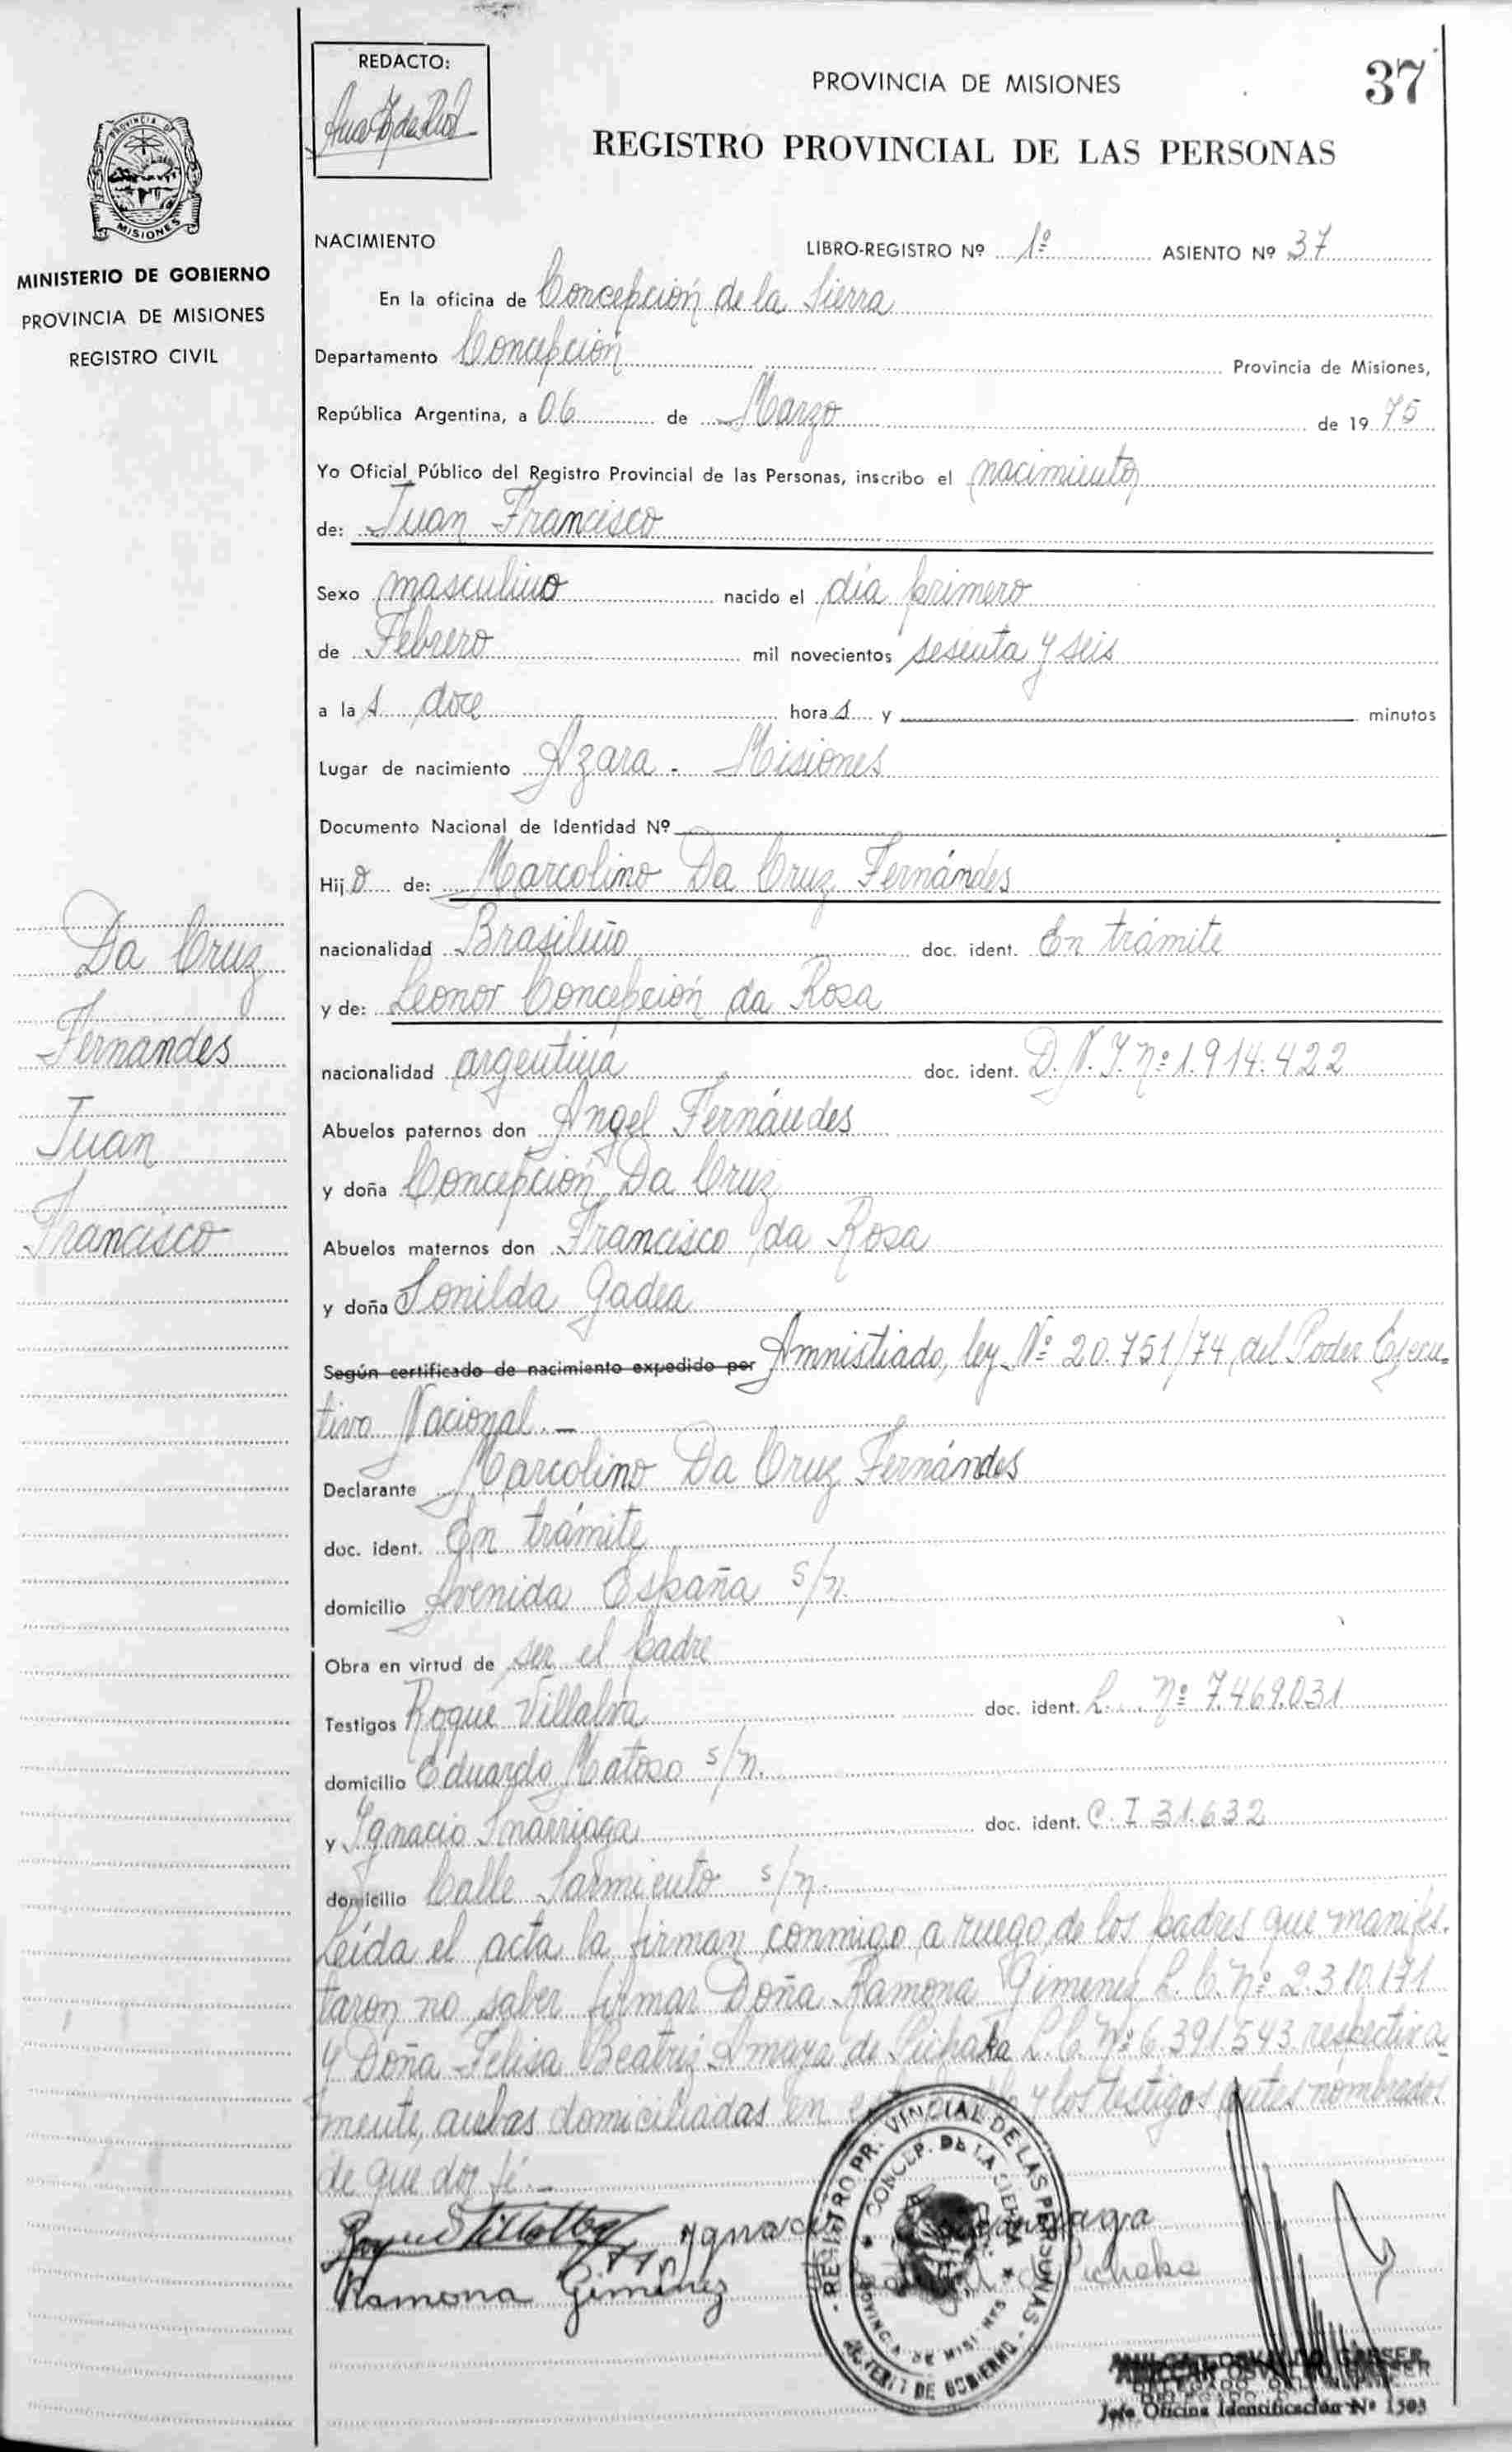 REDACTO:
PROVINCIA DE MISIONES
37
REGISTRO PROVINCIAL DE LAS PERSONAS
PROVINCIA DE
MISIONES
MINISTERIO DE GOBIERNO
PROVINCIA DE MISIONES
REGISTRO CIVIL
NACIMIENTO LIBRO-REGISTRO Nº 1º ASIENTO Nº 37
En la oficina de Concepción de la Sierra
Departamento Concepción Provincia de Misiones,
República Argentina, a 06 de Marzo de 1975
Yo Oficial Público del Registro Provincial de las Personas, inscribo el nacimiento
de: Juan Francisco
Sexo masculino nacido el día primero
de Febrero mil novecientos sesenta y seis
a las doce horas y minutos
Lugar de nacimiento Azara - Misiones
Documento Nacional de Identidad Nº
Hijo de: Marcolino Da Cruz Fernándes
nacionalidad Brasileño doc. ident. En trámite
y de: Leonor Concepción da Rosa
nacionalidad argentina doc. ident. D.N.I. nº 1.914.422
Abuelos paternos don Angel Fernándes
y doña Concepción Da Cruz
Abuelos maternos don Francisco da Rosa
y doña Sonilda Gadea
Según certificado de nacimiento expedido por Amnistiado, ley Nº 20.751/74 del Poder Ejecu-
tivo Nacional.-
Declarante Marcolino Da Cruz Fernándes
doc. ident. En trámite
domicilio Avenida España s/n.
Obra en virtud de ser el padre
Testigos Roque Villalva doc. ident. L. nº 7.469.031
domicilio Eduardo Matoso s/n.
y Ignacio Inarriaga doc. ident. C.I 31.632
domicilio Calle Sarmiento s/n.
Leída el acta la firman conmigo a ruego de los padres que manifes-
taron no saber firmar Doña Ramona Gimenez L.C. nº 2.310.171
y Doña Felisa Beatriz Amaya de Pichaka L.C. Nº 6.391.543 respectiva-
mente, ambas domiciliadas en y los testigos antes nombrados
de que doy fé.-
Da Cruz
Fernandes
Juan
Francisco
Roque Villalba Ignacio
Ramona Giménez
REGISTRO PROVINCIAL DE LAS PERSONAS
CONCEP. DE LA SIERRA
PROVINCIA DE MISIONES
MINISTERIO DE GOBIERNO
Jefe Oficina Identificación Nº 1503